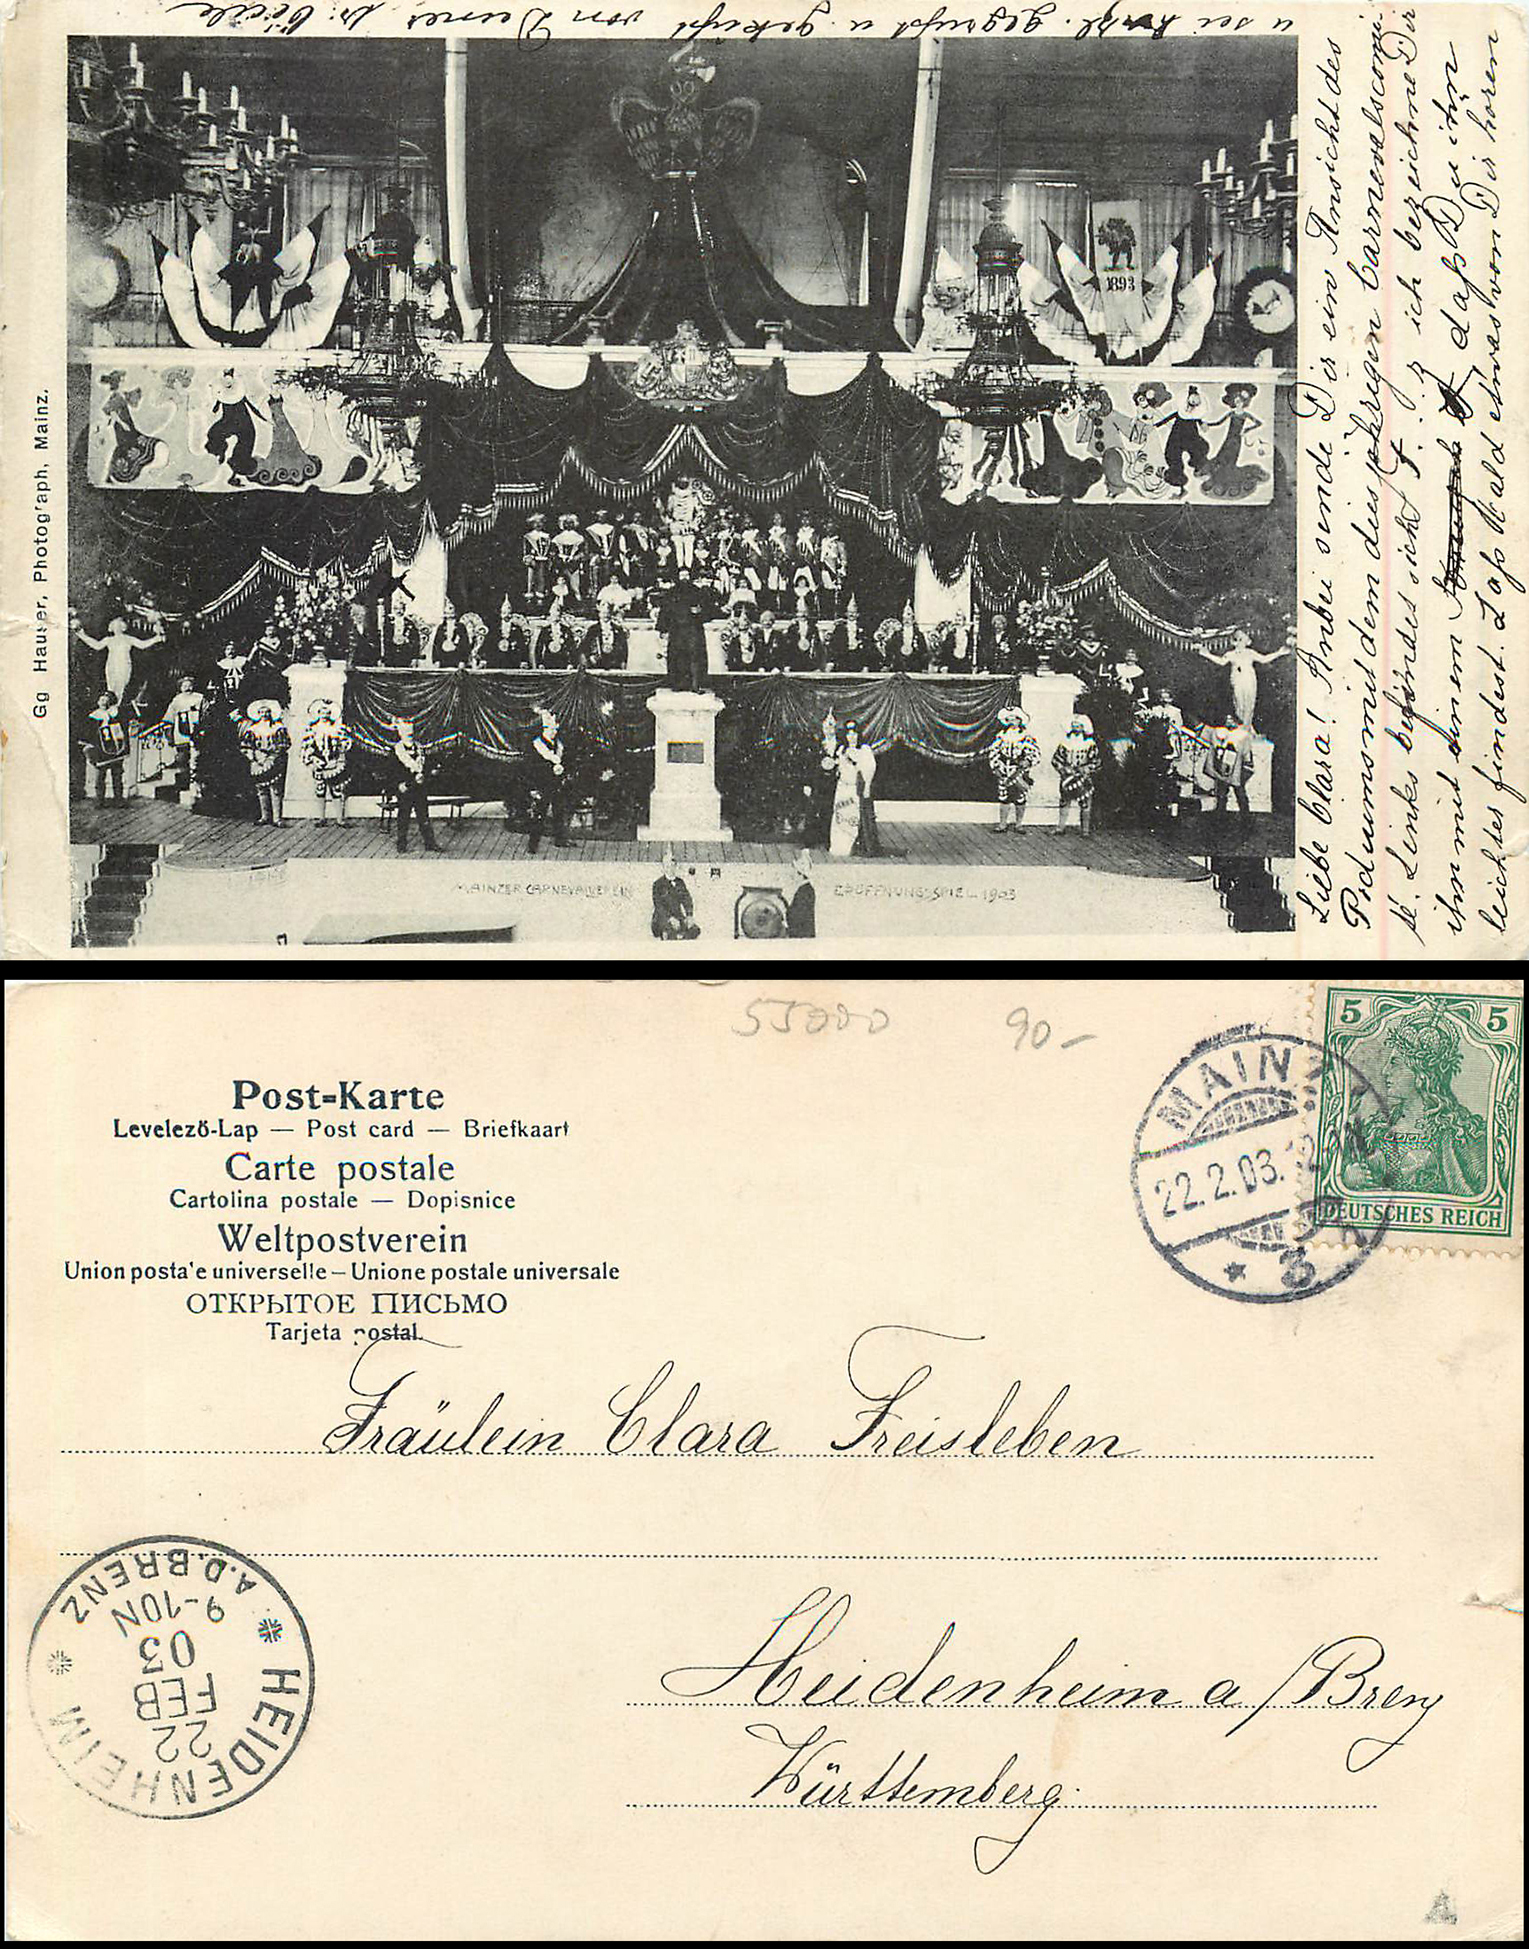 Gg Hauser, Photograph, Mainz.
1893
MAINZER CARNEVALVEREIN
ERÖFFNUNGS-SPIEL 1903
Liebe Clara! Anbei sende Dir ein Ansicht des
Podiums mit dem diesjährigen Carnevalscomi-
té. Links befindet sich F. ich bezeichne Dir
ihn mit einem daß Du ihn
leichter findest. Laß bald etwas von Dir hören
u sei herzl. gegrüßt u geküßt von Deiner Cécile
55000
90-
Post-Karte
Levelező-Lap — Post card — Briefkaart
Carte postale
Cartolina postale — Dopisnice
Weltpostverein
Union postale universelle – Unione postale universale
ОТКРЫТОЕ ПИСЬМО
Tarjeta postal
MAINZ
22.2.03.
* 3
5 5
DEUTSCHES REICH
Fräulein Clara Freisleben
Heidenheim a/Brenz
Württemberg.
HEIDENHEIM
22
FEB
03
9-10N
A.D.BRENZ